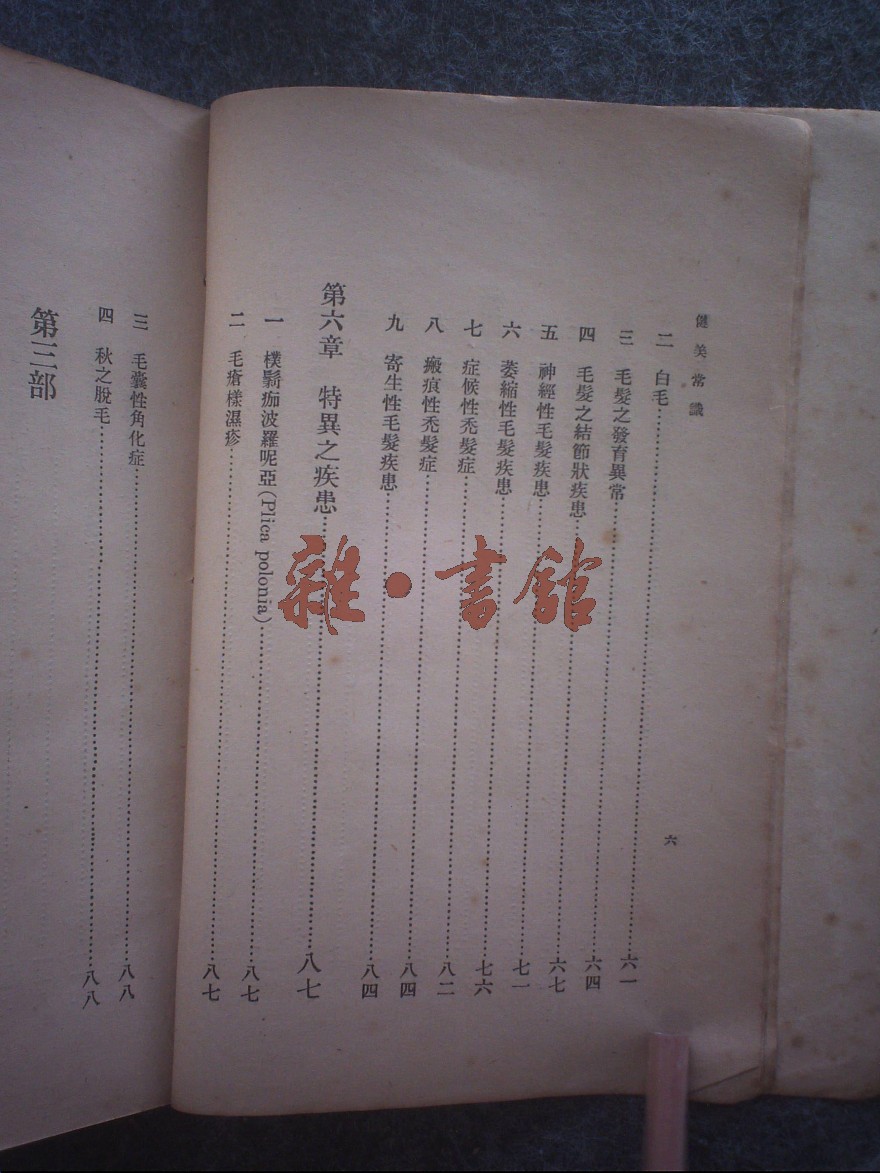 健美常識
六
二 白毛…………六一
三 毛髮之發育異常…………六四
四 毛髮之結節狀疾患…………六七
五 神經性毛髮疾患…………七一
六 萎縮性毛髮疾患…………七六
七 症候性禿髮症…………八二
八 瘢痕性禿髮症…………八四
九 寄生性毛髮疾患…………八四
第六章 特異之疾患…………八七
一 樸髴痂波羅呢亞(Plica polonia)…………八七
二 毛瘡樣濕疹…………八七
三 毛囊性角化症…………八八
四 秋之脫毛…………八八
第三部
雜•書館